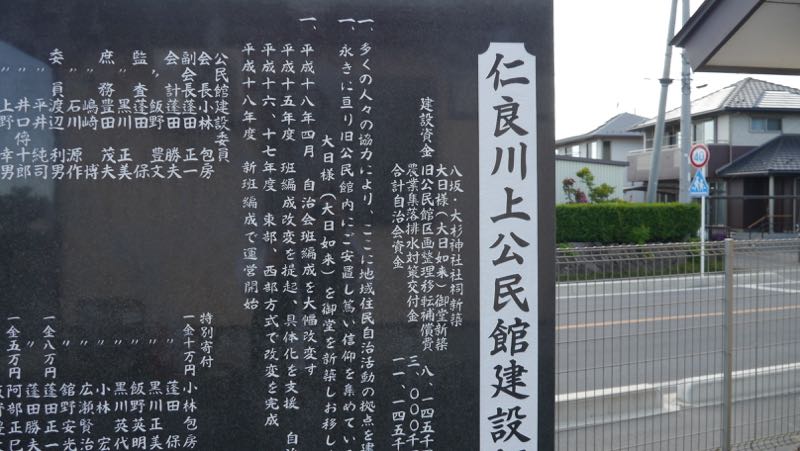 仁良川上公民館建設
八坂・大杉神社社祠新築
大日様(大日如来)御堂新築
建設資金 旧公民館区画整理移転補償費 八、一四五千
農業集落排水対策交付金 三、〇〇〇千
合計自治会資金 一一、一四五千
一、多くの人々の協力により、ここに地域住民自治活動の拠点を建
一、永きに亘り旧公民館内にご安置し篤い信仰を集めている
大日様(大日如来)を御堂を新築しお移し
一、平成十八年四月 自治会班編成を大幅改変す
平成十五年度 班編成改変を提起、具体化を支援 自
平成十六、十七年度 東部、西部方式で改変を完成
平成十八年度 新班編成で運営開始
公民館建設委員
会長 小林 包房
副会長 蓬田 正一
会計 蓬田 勝夫
〃 飯野 豊文
監査 蓬田 保
〃 黒川 正美
庶務 豊田 茂夫
〃 嶋﨑 博
委員 渡辺 利男
〃 石川 源作
〃 平井 純司
〃 井口 侍十郎
〃 上野 幸男
特別寄付
一金十万円 小林包房
〃 蓬田 保
〃 黒川正美
〃 飯野英明
〃 黒川英代
〃 小林 宏
〃 広瀬賢治
〃 舘野安光
一金八万円 蓬田正一
〃 蓬田勝夫
一金五万円 阿部正巳
40